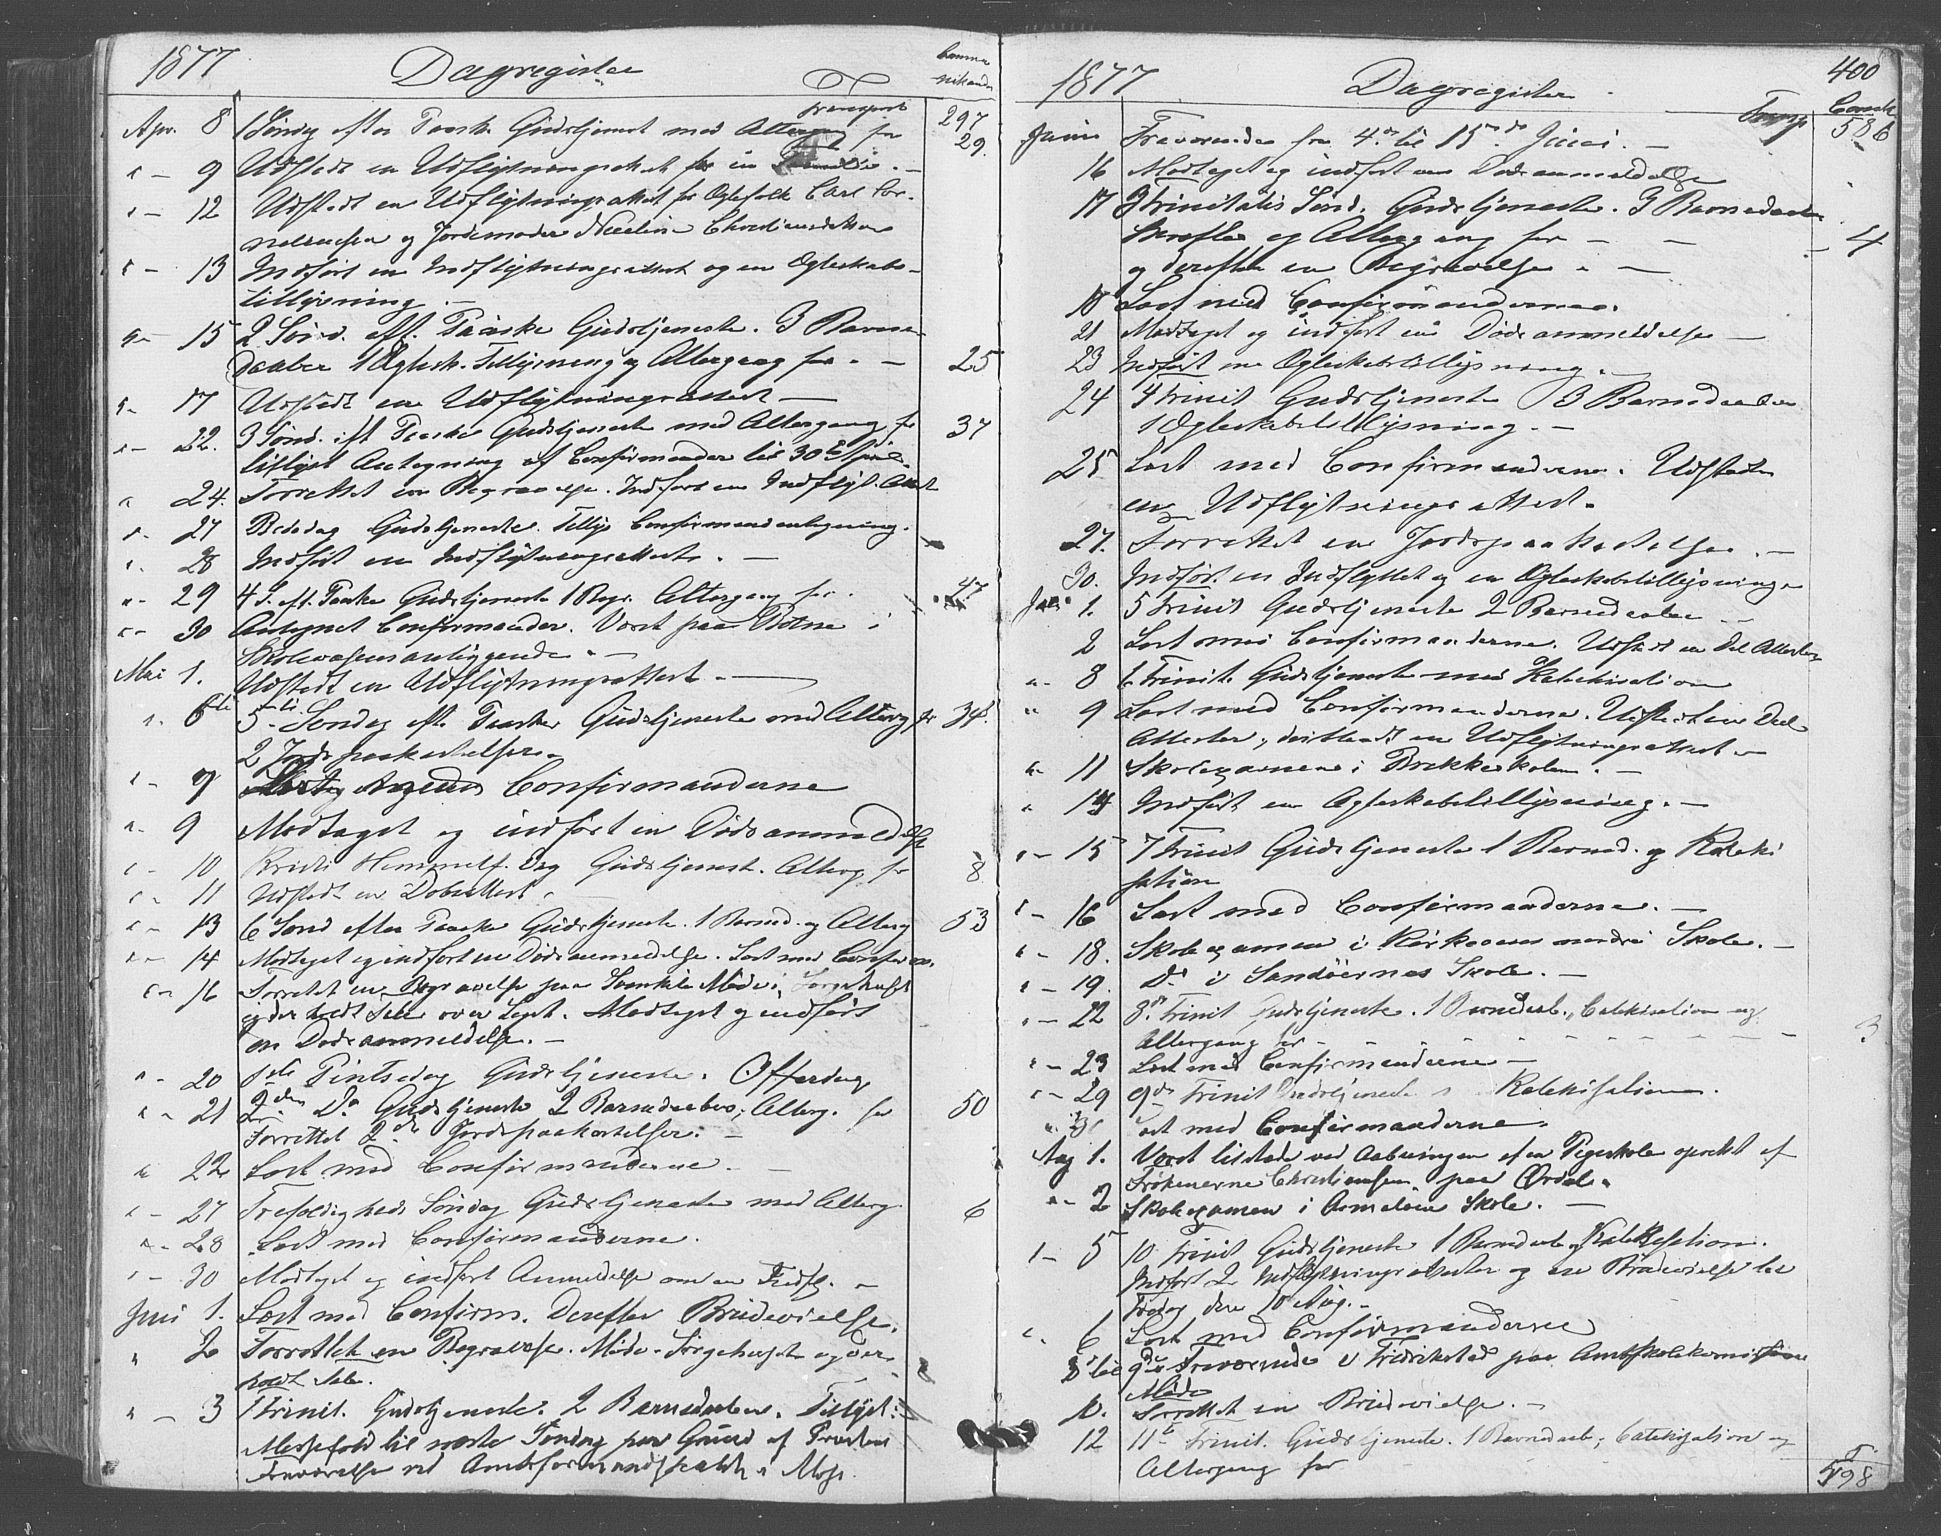 1877 Dagregister Commu-
nikanter
Transport 297
Apr. 8 1 Søndag efter Paaske Gudstjenest med Altergang for 29
" - 9 Udstedt en Udflytningsattest for en
" - 12 Udstedt en Udflytningsattest for Ægtefolk Carl Cor-
neliussen og Jordemoder
" - 13 Indført en Indflytningsattest og en Ægteskabs-
tillysning.
" - 15 2 Sønd. eft. Paaske Gudstjeneste. 3 Barne-
daaber 1 Ægtesk. Tillysning og Altergang for - 25
" - 17 Udstedt en Udflytningsattest
" - 22. 3 Sønd. eft Paaske Gudstjeneste med Altergang for 37
tillyst Antegning af Confirmander til 30te April.
" 24. Forrettet en Begravelse. Indført en Indflyt. Attest
" - 27 Bededag Gudstjeneste. Tillys Confirmandantegning.
" - 28 Indført en Indflytningsattest. -
" - 29 4 S. eft. Paaske Gudstjeneste 1 Begr. Altergang for. 47
" - 30 Antegnet Confirmander. Været paa Botne i
Skolevæsensanliggende. -
Mai 1. Udstedt en Udflytningsattest. -
" - 6te 5te Søndag eft. Paaske Gudstjeneste med Alterg for 34
2 Jordspaakastelser.
" - 7 Confirmanderne
" - 9 Modtaget og indført en Dødsanmeldelse
" - 10 Kristi Himmelf. Dag Gudstjenest. Alterg for 8
" - 11 Udstedt en Dobsattest.
" - 13 6 Sønd efter Paaske Gudstjeneste. 1 Barned. og Alterg 53
" - 14 Modtaget og indført en Dødsanmeldelse. Læst med Confirm.
" - 16 Forrettet en Begravelse paa Mødte i Sørgehuset
og der holdt Tale over Liget. Modtaget og indført
en Dødsanmeldelse. -
" - 20 1ste Pintsedag Gudstjeneste. Offerdag
" - 21 2den Do Gudstjeneste 2 Barnedaaber, Alterg. for 50
Forrettet 2de Jordspaakastelser. -
" 22 Læst med Confirmanderne. -
" - 27 Trefoldigheds Søndag Gudstjeneste med Alterg 6
" - 28 Læst med Confirmanderne.
" - 30 Modtaget og indført Anmeldelse om en Indfl. -
Juni 1. Læst med Confirm. Derefter Brudevielse.
" 2 Forrettet en Begravelse. Møde i Sørgehuset og der
holdt Tale.
" - 3 1 Trinit. Gudstjeneste. 2 Barnedaaber. Tillyst:
Messefald til næste Søndag paa Grund af Præstens
Fraværelse ved Amtsformandskabet i Moss.
1877 Dagregister 400
Transp Comk
586
Juni Fraværende fra 4de til 15de do Juni. -
16 Modtaget og indført en Dødsanmeldelse
17 3 Trinitatis Sønd. Gudstjeneste. 3 Barnedaaber
Skrifte og Altergang for - - - 4
og derefter en Begravelse. -
18 Læst med Confirmanderne.
21 Modtaget og indført en Dødsanmeldelse -
23 Indført en Ægteskabstillysning.
24 4 Trinit Gudstjeneste 3 Barnedaaber
1 Ægteskabstillysning. -
25 Læst med Confirmanderne. Udstedt
en Udflytningsattest.
27. Forrettet en Jordspaakastelse. -
30. Indført en Indflyttet og en Ægteskabstillysning
1. 5 Trinit Gudstjeneste 2 Barnedaaber
2 Læst med Confirmanderne. Udstedt en Del Attester
" - 8 6 Trinit. Gudstjeneste med Katekisation
" 9 Læst med Confirmanderne. Udstedt en Del
Attester, deriblandt en Udflytningsattest -
" - 11 Skoleexamen i Brekkeskolen. -
" 14 Indført en Ægteskabstillysning. -
" - 15 7 Trinit Gudstjeneste 1 Barned. og Kateki
sation
" - 16 Læst med Confirmanderne. -
" - 18. Skoleexamen i Kirkeøens nordre Skole. -
" - 19. Do i Sandøernes Skole. -
" - 22 8de Trinit Gudstjeneste. 1 Barnedaab. Catekisation og
Altergang for - - - - - - - 3
" - 23 Læst med Confirmanderne -
" - 29 9de Trinit Gudstjeneste Katekisation.
Læst med Confirmanderne.
Aug 1. Været tilstede ved Aabningen af en Pigeskole oprettet af
Frøknerne Christiansen paa Ørdal.
" - 2 Skoleexamen i Asmaløens Skole. -
" - 5 10 Trinit Gudstjeneste 1 Barnedaab og Katekisation.
Indført 2 Indflytningsattester og en Brudevielse til
Fredag den 10 Aug. -
" 6 Læst med Confirmanderne
8 til 9de Fraværende i Fredrikstad paa Amtskolekomissions
Møde
10. Forrettet en Brudevielse. -
12 11te Trinit. Gudstjeneste. 1 Barnedaab, Catekisation og
Altergang for
T.
598